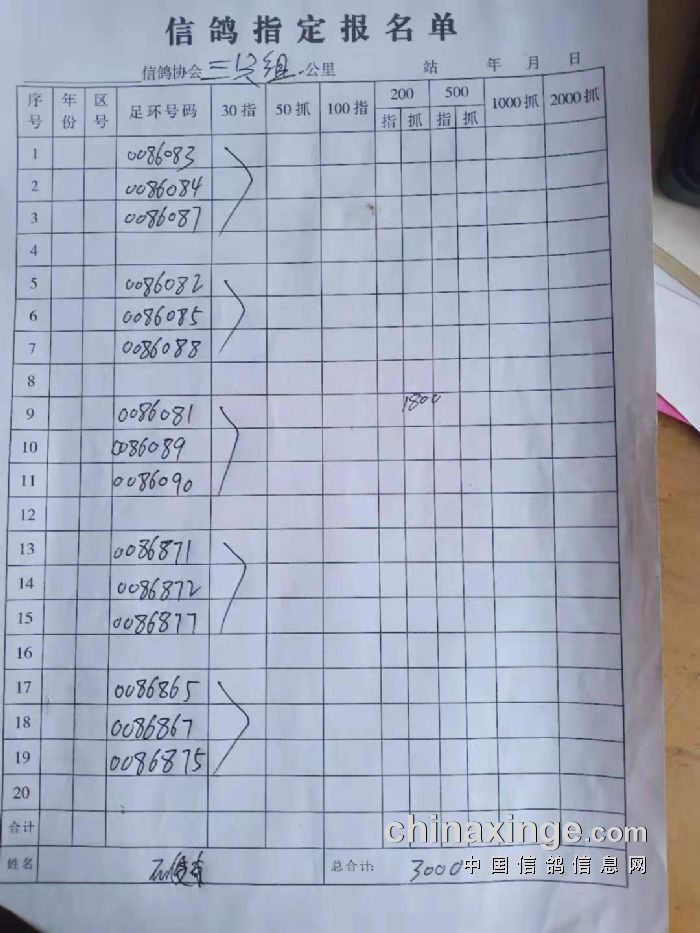 信鸽指定报名单
信鸽协会三只组公里 站 年 月 日
序号 年份 区号 足环号码 30指 50抓 100指 200 指 抓 500 指 抓 1000抓 2000抓
1 0086083
2 0086084
3 0086087
4
5 0086082
6 0086085
7 0086088
8
9 0086081 1800
10 0086089
11 0086090
12
13 0086871
14 0086872
15 0086877
16
17 0086865
18 0086867
19 0086875
20
合计
姓名 总合计: 3000
chinaxinge.com
中国信鸽信息网